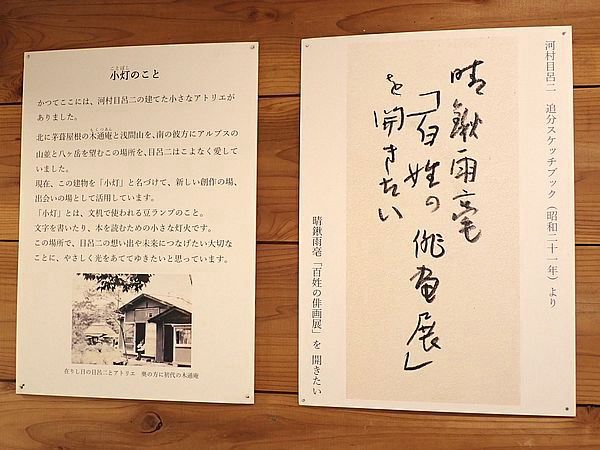 小灯のこと
ことぼし
かつてここには、河村目呂二の建てた小さなアトリエが
ありました。
北に茅葺屋根の木通庵と浅間山を、南の彼方にアルプスの
山並と八ヶ岳を望むこの場所を、目呂二はこよなく愛して
いました。
現在、この建物を「小灯」と名づけて、新しい創作の場、
出会いの場として活用しています。
「小灯」とは、文机で使われる豆ランプのこと。
文字を書いたり、本を読むための小さな灯火です。
この場所で、目呂二の想い出や未来につなげたい大切な
ことに、やさしく光をあててゆきたいと思っています。
在りし日の目呂二とアトリエ 奥の方に初代の木通庵
河村目呂二 追分スケッチブック(昭和二十一年)より
晴鍬雨亳
「百姓の俳画展」
を開きたい
晴鍬雨亳「百姓の俳画展」を 開きたい